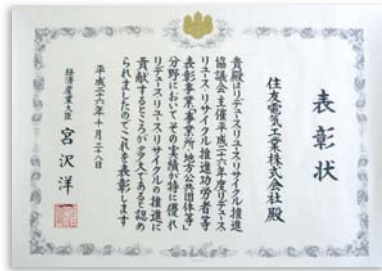 表彰状
住友電気工業株式会社殿
貴殿はリデュース・リユース・リサイクル推進
協議会主催平成二十六年度リデュース・
リユース・リサイクル推進功労者等
表彰事業「事業所・地方公共団体等」
分野においてその実績が特に優れ
リデュース・リユース・リサイクルの推進に
貢献するところが多大であると認め
られましたのでこれを表彰します
平成二十六年十月二十八日
経済産業大臣 宮沢洋一